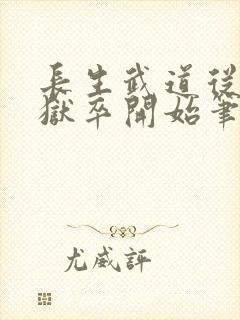 長生武道從
獄卒開始筆
尤威評